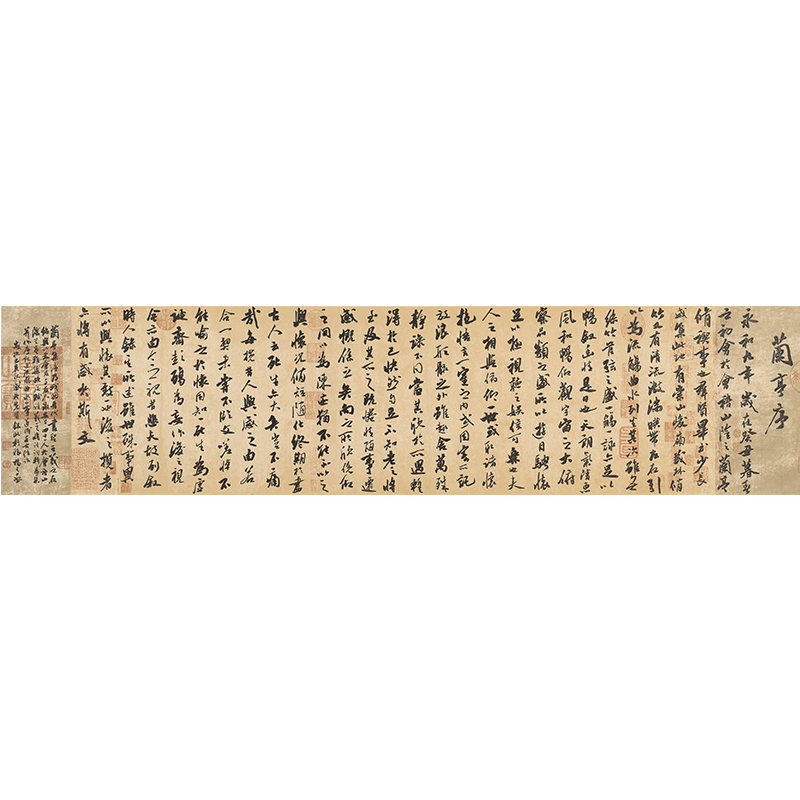 蘭亭序
永和九年歲在癸丑暮春
之初會於會稽山陰之蘭亭
脩禊事也羣賢畢至少長
咸集此地有崇山峻領茂林脩
竹又有清流激湍暎帶左右引
以為流觴曲水列坐其次雖無
絲竹管弦之盛一觴一詠亦足以
暢叙幽情是日也天朗氣清惠
風和暢仰觀宇宙之大俯
察品類之盛所以遊目騁懷
足以極視聽之娛信可樂也夫
人之相與俯仰一世或取諸懷
抱悟言一室之內或因寄所託
放浪形骸之外雖趣舍萬殊
靜躁不同當其欣於所遇暫
得於己快然自足不知老之將
至及其所之既惓情隨事遷
感慨係之矣向之所欣俛仰
之間以為陳迹猶不能不以之
興懷況脩短隨化終期於盡
古人云死生亦大矣豈不痛
哉每攬昔人興感之由若
合一契未嘗不臨文嗟悼不
能喻之於懷固知一死生為虛
誕齊彭殤為妄作後之視
今亦由今之視昔悲夫故列叙
時人錄其所述雖世殊事異
所以興懷其致一也後之攬者
亦將有感於斯文